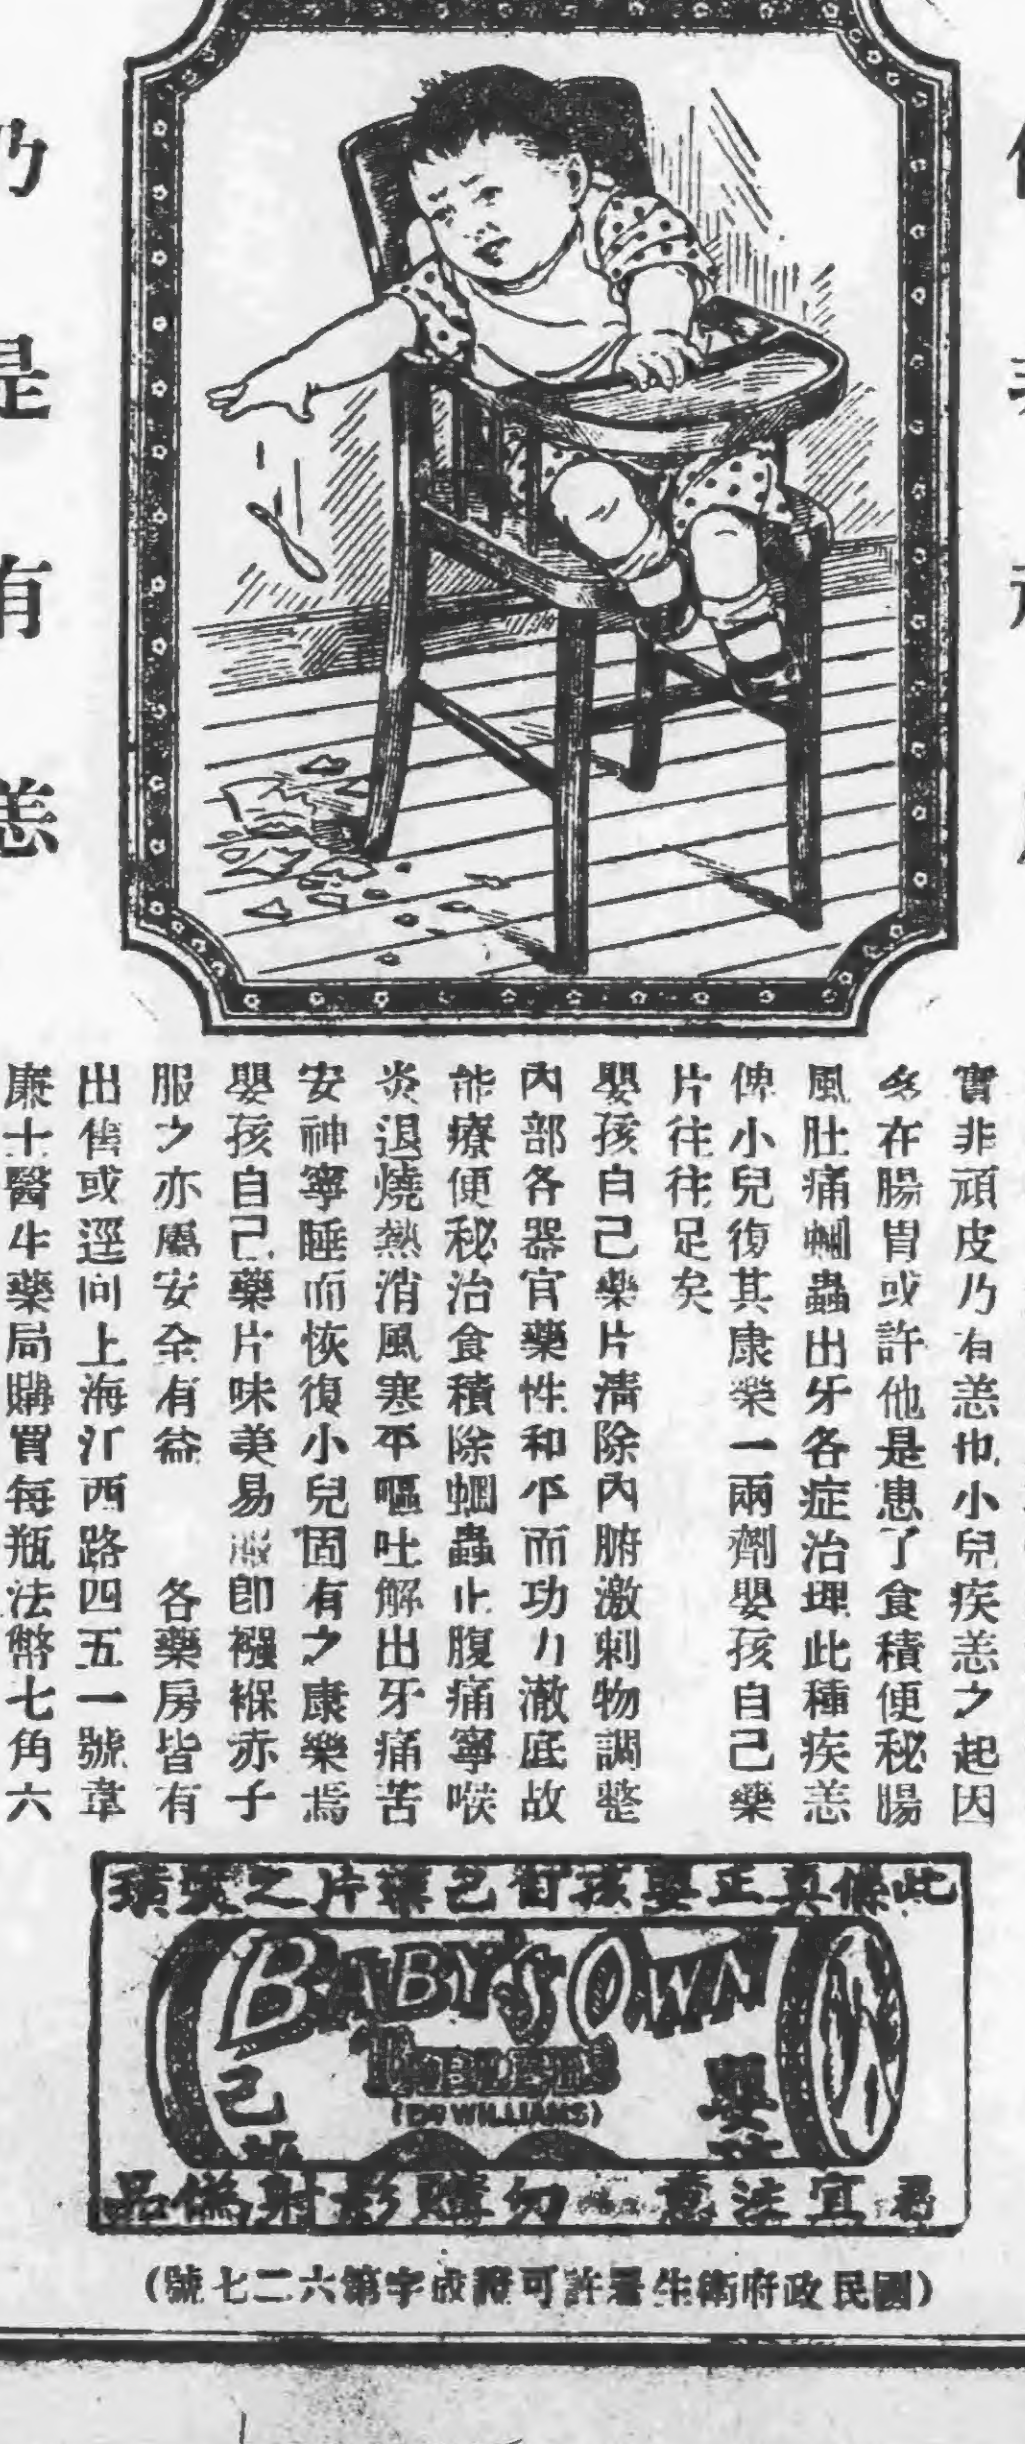 乃是有恙
實非頑皮乃有恙也小兒疾恙之起因
多在腸胃或許他是患了食積便秘腸
風肚痛蛔蟲出牙各症治理此種疾恙
俾小兒復其康樂一兩劑嬰孩自己藥
片往往足矣
嬰孩自己藥片清除內腑激刺物調整
內部各器官藥性和平而功力澈底故
能療便秘治食積除蛔蟲止腹痛寧喉
炎退燒熱消風寒平嘔吐解出牙痛苦
安神寧睡而恢復小兒固有之康樂焉
嬰孩自己藥片味美易服即襁褓赤子
服之亦屬安全有益 各藥房皆有
出售或逕向上海江西路四五一號韋
廉士醫生藥局購買每瓶法幣七角六
此係真正嬰孩自己藥片之裝璜
BABY'S OWN
TABLETS
(DR WILLIAMS)
嬰
己
宜注意 勿購影射偽品
(國民政府衛生署許可證成字第六二七號)